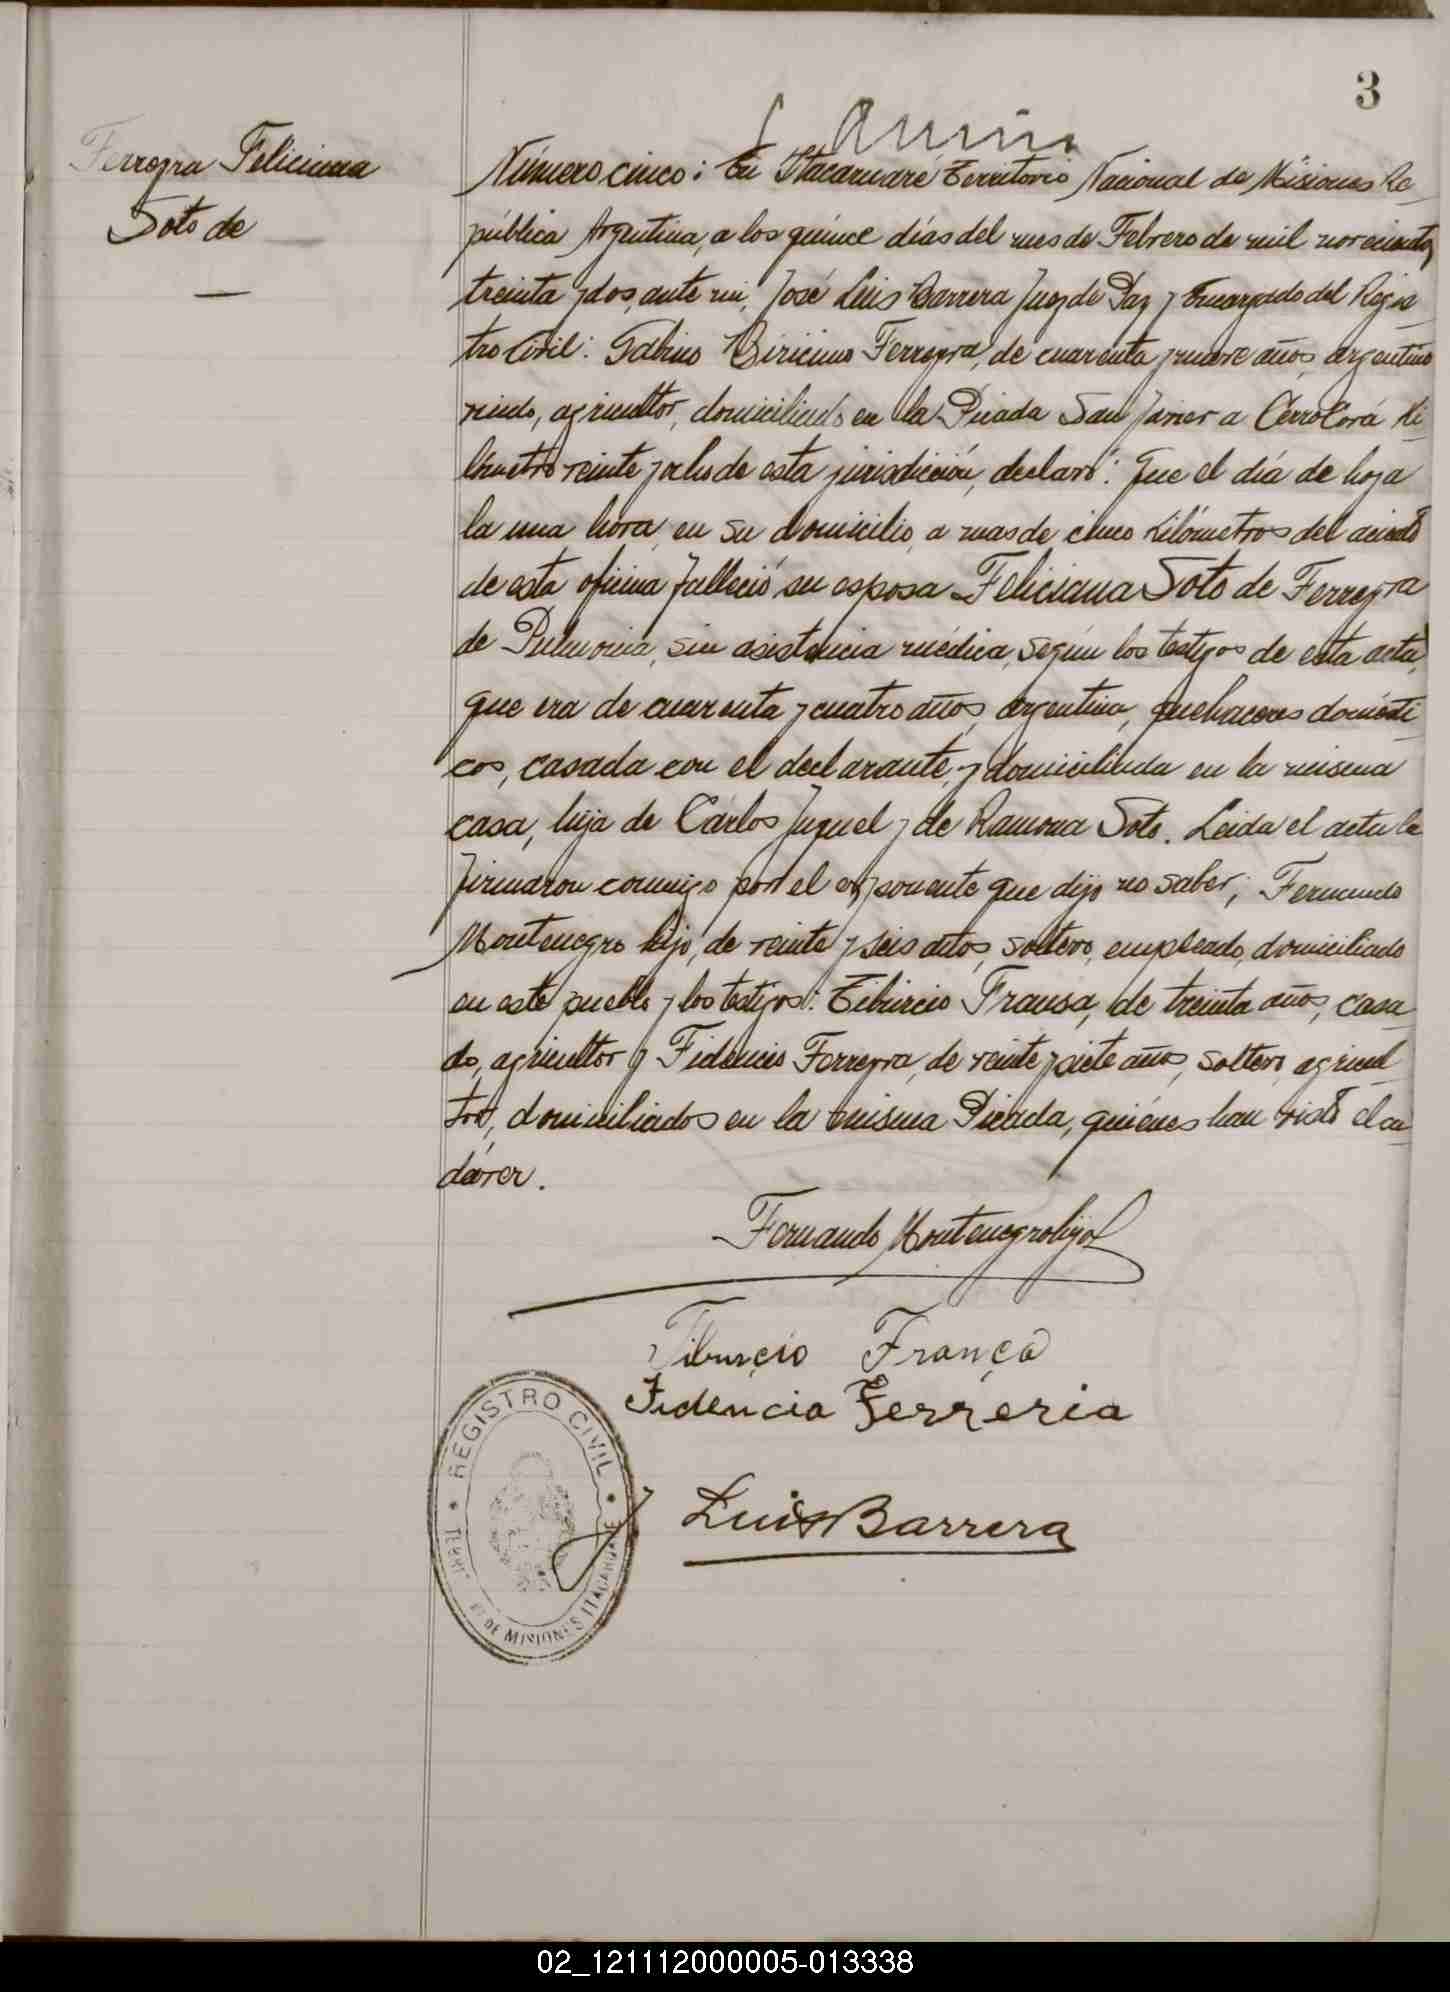 3
Ferreyra Feliciana
Soto de
Número cinco: En Itacaruaré Territorio Nacional de Misiones Re-
pública Argentina, a los quince días del mes de Febrero de mil novecientos
treinta y dos, ante mi, José Luis Barrera Juez de Paz y Encargado del Regis-
tro Civil: Gabino Ferreyra, de cuarenta y nueve años, argentino
viudo, agricultor, domiciliado en la Picada San Javier a Cerro Corá Ki-
lómetro veinte y ocho de esta jurisdicción, declaró: Que el día de hoy a
la una hora, en su domicilio, a mas de cinco kilómetros del asiento
de esta oficina falleció su esposa Feliciana Soto de Ferreyra
de Pulmonia, sin asistencia médica, según los testigos de esta acta,
que era de cuarenta y cuatro años, argentina, quehaceres domésti-
cos, casada con el declarante, y domiciliada en la misma
casa, hija de Cárlos y de Ramona Soto. Leida el acta la
firmaron conmigo por el exponente que dijo no saber; Fernando
Montenegro hijo, de veinte y seis años, soltero, empleado, domiciliado
en este pueblo y los testigos: Tiburcio Fransa, de treinta años, casa-
do, agricultor y Fidencio Ferreyra, de veinte y siete años, soltero, agricul-
tor, domiciliados en la misma Picada, quiénes han visto el ca-
dáver.
Fernando Montenegro hijo
Tiburcio França
Fidencia Ferreria
Luis Barrera
REGISTRO CIVIL
DE MISIONES ITACARUARE
02_121112000005-013338